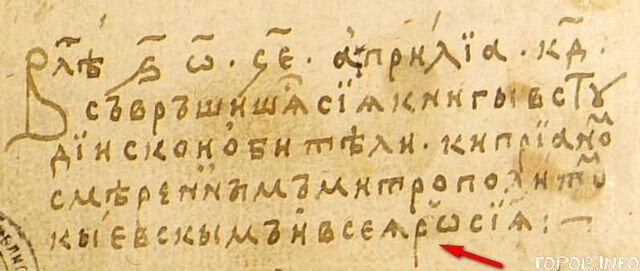 В лѣⷮ ҂ѕ҃ ѡ҃. ҁ҃е. априлїа. к҃д.
съвръшишѧⷭ сїѧ книгы в стꙋ
дїискои обители. кипрїаноⷨ
смѣреннымъ митрополитоⷨ
кыевскымъ и всеѧ рѡсїѧ :—
TOPOR.INFO